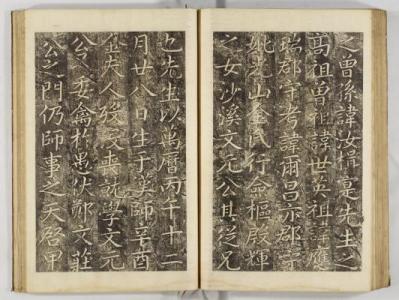 之曾孫諱汝楫寔先生之
高祖曾祖諱世英祖諱應
瑞郡守考諱爾昌亦郡守
妣光山金氏行僉樞殷輝
之女沙溪文元公其從兄
也先生以萬曆丙午十二
月廿八日生于漢師辛酉
金夫人歿喪就學文元
公委禽於愚伏鄭文莊
公之門仍師事之天啓甲